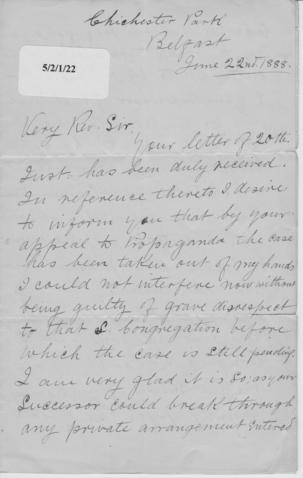 Chichester Park
Belfast
June 22nd. 1888.
5/2/1/22
Very Rev. Sir,
Your letter of 20th.
Inst. has been duly received.
In reference thereto I desire
to inform you that by your
appeal to Propaganda the case
has been taken out of my hands
I could not interfere now without
being guilty of grave disrespect
to that S. Congregation before
which the case is still pending.
I am very glad it is so, as your
Successor could break through
any private arrangement entered